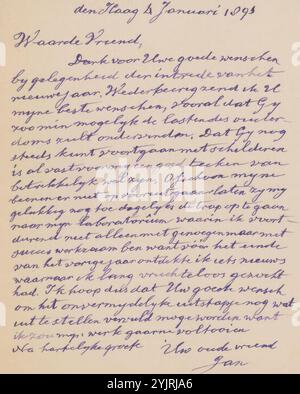 den Haag 4 Januari 1893
Waarde Vriend,
Dank voor Uwe goede wenschen
by gelegenheid der intrede van het
nieuwe jaar. Wederkeerig zend ik U
myne beste wenschen, vooral dat Gy
zoo min mogelyk de lasten des ouder-
doms zult ondervinden. Dat Gy nog
steeds kunt voortgaan met schilderen
is al vast voor my een goed teeken van
betrekkelyk welzyn. Ofschoon myne
beenen er niet op vooruitgaan laten zy my
gelukkig nog toe dagelyks de trap op te gaan
naar myn laboratorium waarin ik voort
durend niet alleen met genoegen maar met
succes werkzaam ben want van het einde
van het vorige jaar ontdekte ik iets nieuws
waarnaar ik lang vruchteloos gezocht
had. Ik hoop dus dat Uw goede wensch
om het onvermydelyk uitstapje nog wat
uit te stellen vervuld moge worden want
ik zou myn werk gaarne voltooien
Na hartelyke groete Uw oude vriend
Jan
alamy
Image ID: 2YJRJA6
www.alamy.com